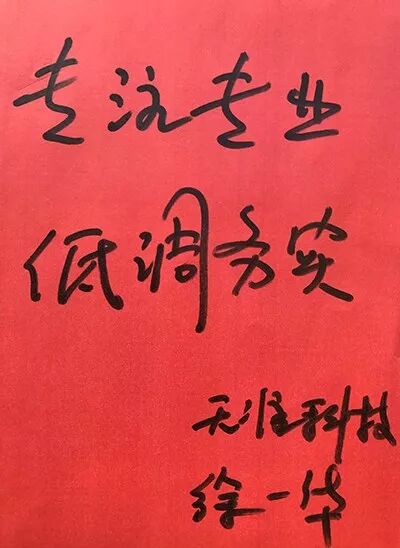 专注专业
低调务实
天准科技
徐一华